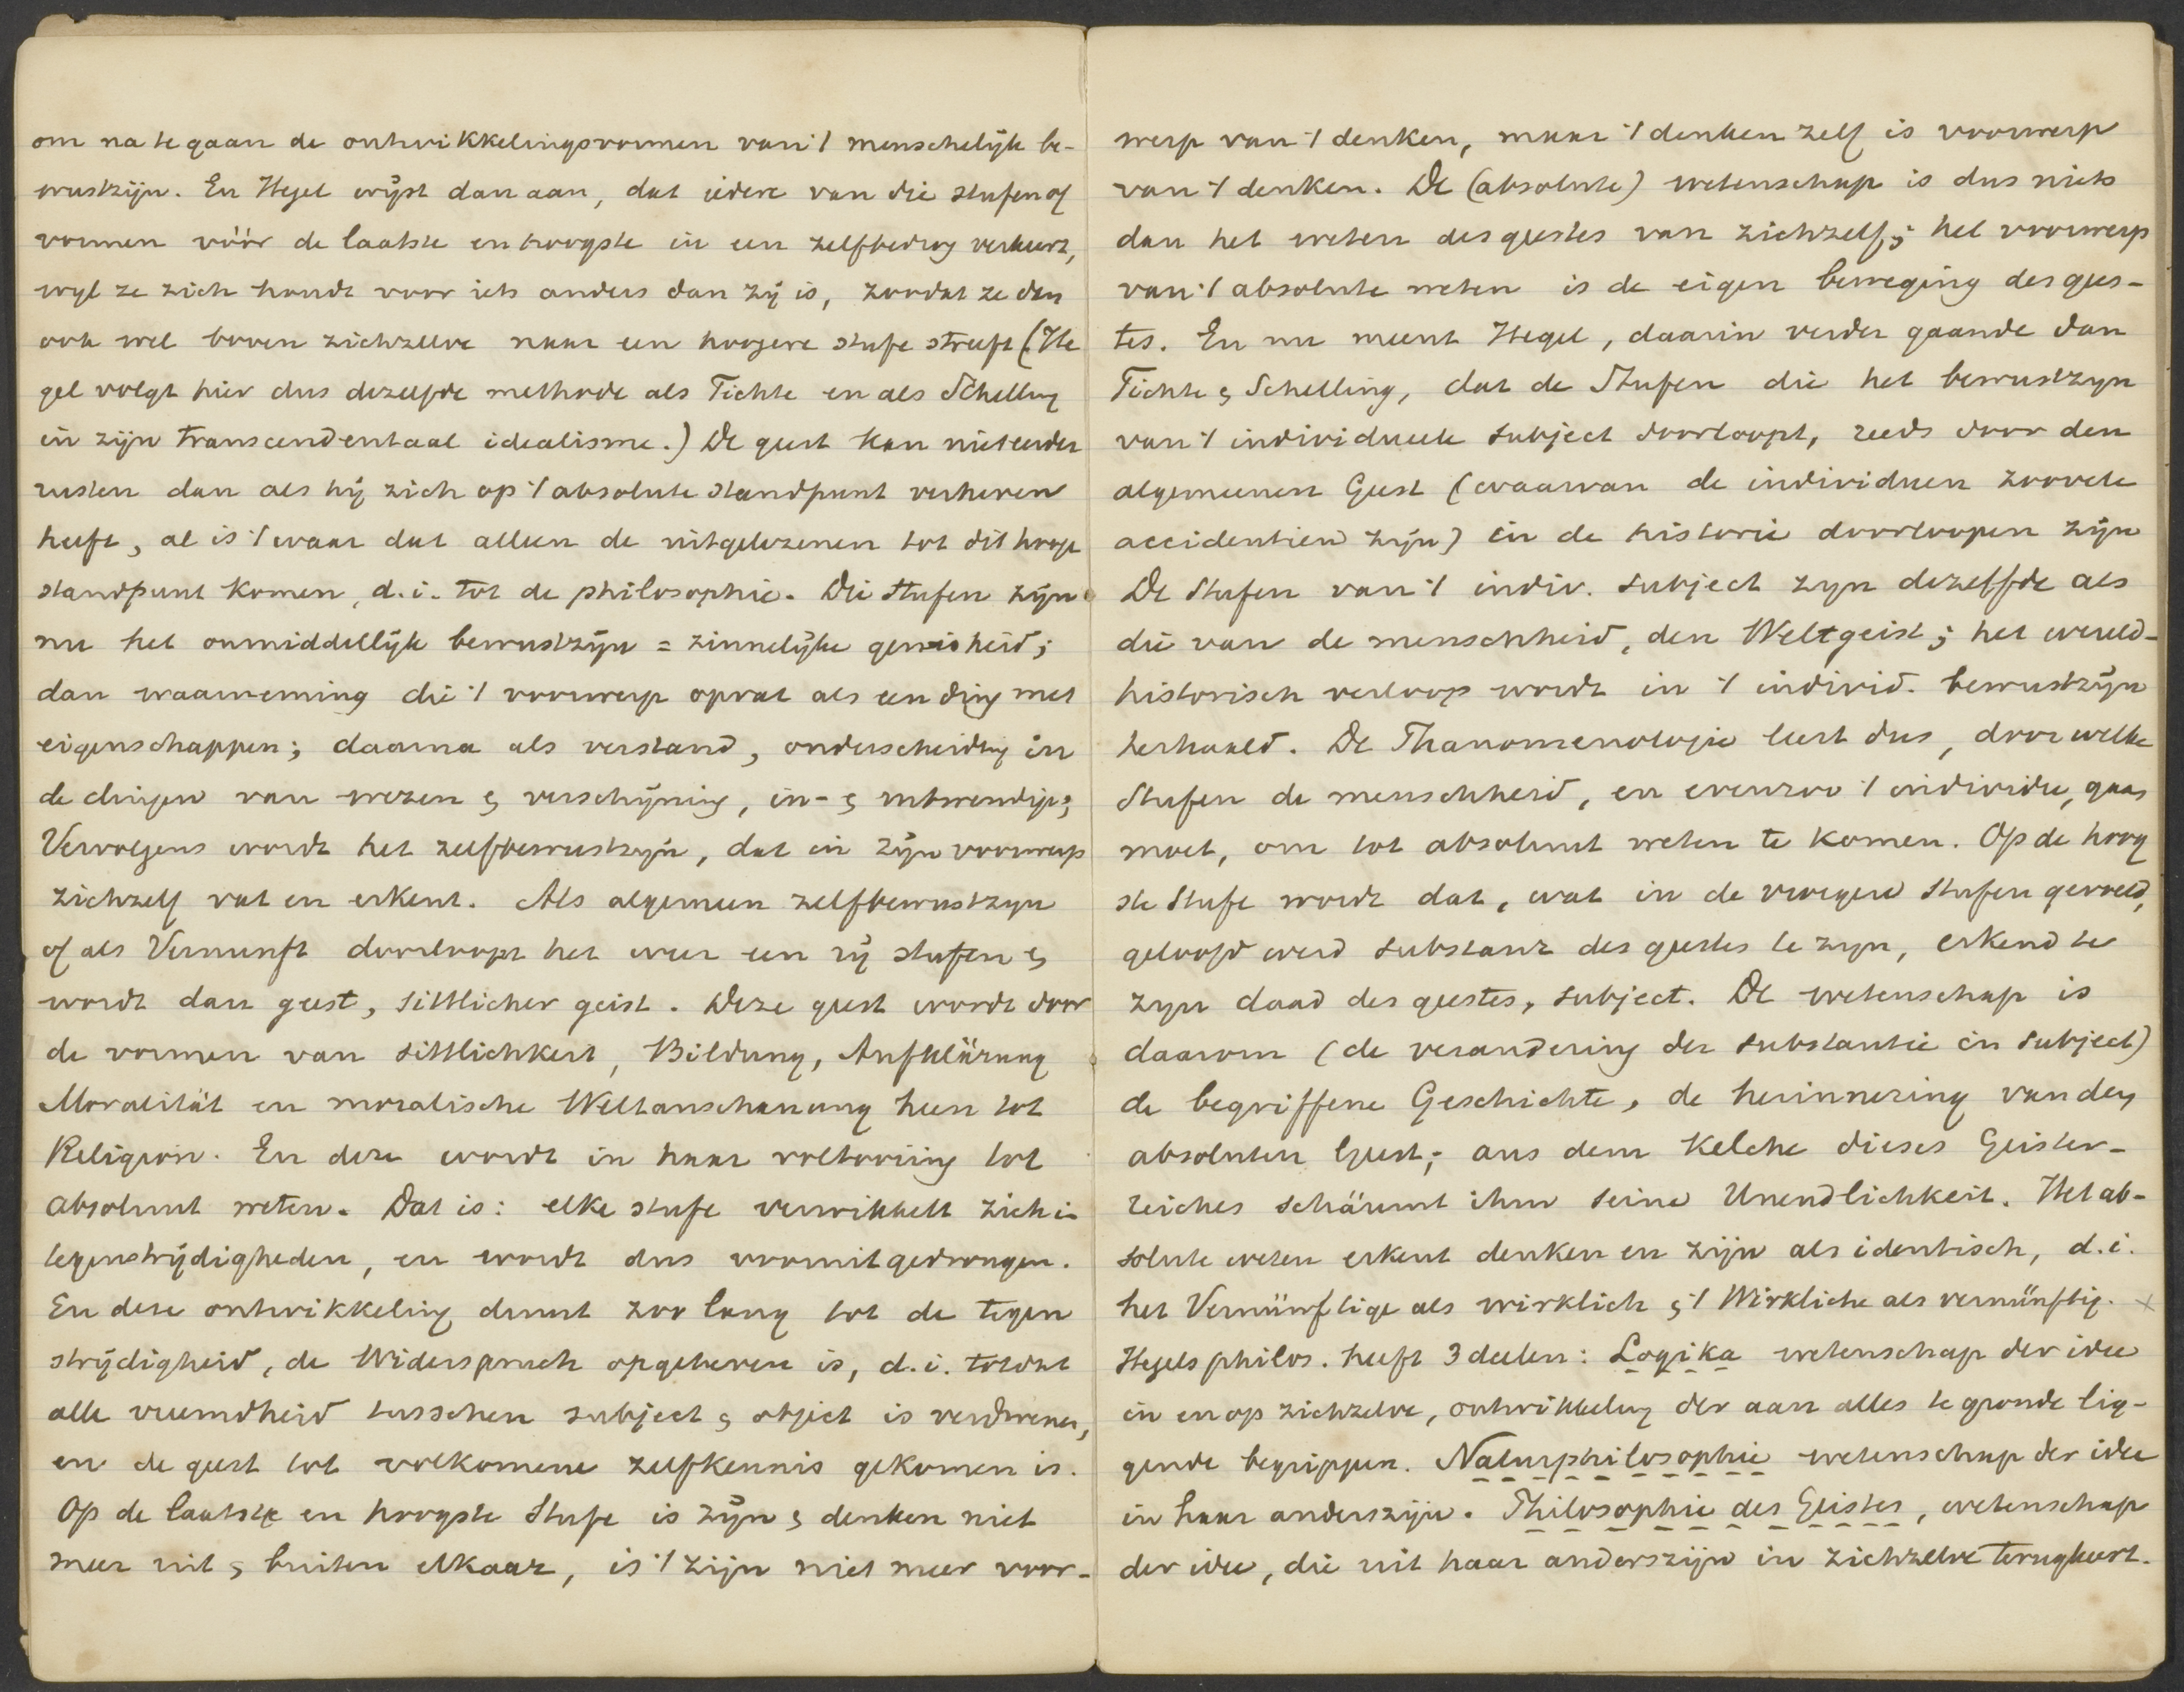 om na te gaan de ontwikkelingsvormen van 't menschelijk be-
wustzijn. En Hegel wijst dan aan, dat iedere van die stufen of
vormen vóór de laatste en hoogste in een zelfbedrog verkeert,
wyl ze zich houdt voor iets anders dan zij is, zoodat ze dan
ook wel boven zichzelve naar een hoogere stufe streeft (He
gel volgt hier dus dezelfde methode als Fichte en als Schelling
in zijn transcendentaal idealisme.) De geest kan niet eerder
rusten dan als hij zich op 't absolute standpunt verheven
heeft, al is 't waar dat alleen de uitgelezenen tot dit hooge
standpunt komen, d.i. tot de philosophie. Die stufen zijn
nu het onmiddellijk bewustzijn = zinnelijke gewisheid;
dan waarneming die 't voorwerp opvat als een ding met
eigenschappen; daarna als verstand, onderscheiding in
de dingen van wezen & verschijning, in- & uitwendige;
Vervolgens wordt het zelfbewustzijn, dat in zijn voorwerp
zichzelf vat en erkent. Als algemeen zelfbewustzyn
of als Vernunft doorloopt het weer een rij stufen &
wordt dan geest, sittlicher geist. Deze geest wordt door
de vormen van Sittlichkeit, Bildung, Aufklärung
Moralität en moralische Weltanschauung heen tot
Religion. En deze wordt in haar voltooiing tot
absoluut weten. Dat is: elke stufe verwikkelt zich in
tegenstrijdigheden, en wordt dus vooruitgedrongen.
En deze ontwikkeling duurt zoo lang tot de tegen
strijdigheid, de Widerspruch opgeheven is, d.i. totdat
alle vreemdheid tusschen subject & object is verdwenen,
en de geest tot volkomene zelfkennis gekomen is.
Op de laatste en hoogste Stufe is zijn & denken niet
meer uit & buiten elkaar, is 't zijn niet meer voor-
werp van 't denken, maar 't denken zelf is voorwerp
van 't denken. De (absolute) wetenschap is dus niets
dan het weten des geestes van zichzelf; het voorwerp
van 't absolute weten is de eigen beweging des gees-
tes. En nu meent Hegel, daarin verder gaande dan
Fichte & Schelling, dat de Stufen die het bewustzyn
van 't individueele subject doorloopt, reeds door den
algemeenen Geest (waarvan de individuen zoovele
accidentien zijn) in de historie doorloopen zijn
De Stufen van 't indiv. subject zyn dezelfde als
die van de menschheid, den Weltgeist; het wereld-
historisch verloop wordt in 't individ. bewustzijn
herhaald. De Phanomenologie leert dus, door welke
Stufen de menschheid, en evenzoo 't individu, gaan
moet, om tot absoluut weten te komen. Op de hoog
ste Stufe wordt dat, wat in de vroegere Stufen gevoeld,
geloofd werd substanz des geestes te zyn, erkend te
zyn daad des geestes, subject. De wetenschap is
daarom (de verandering der substantie in subject)
de begriffene Geschichte, de herinnering van den
absoluten Geest; aus dem Kelche dieses Geister-
reiches schäumt ihm seine Unendlichkeit. Het ab-
solute weten erkent denken en zijn als identisch, d.i.
het Vernünftige als wirklich & 't Wirkliche als vernünftig. ×
Hegels philos. heeft 3 deelen: Logika wetenschap der idee
in en op zichzelve, ontwikkeling der aan alles te gronde lig-
gende begrippen. Naturphilosophie wetenschap der idee
in haar anderszijn. Philosophie des Geistes, wetenschap
der idee, die uit haar anderszijn in zichzelve terugkeert.